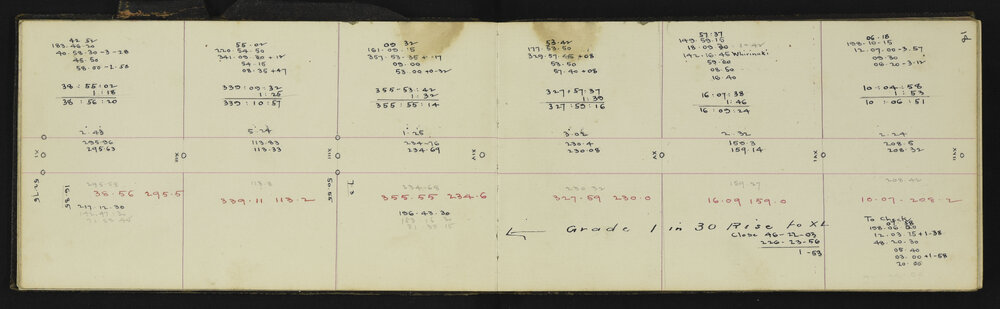 42.52
183.46.20
40.58.30-3-28
45.50
58.00-1.58
38:55:02
1:18
38:56:20
2.43
295.96
295.63
38.56 295.5
217.12.30
55.02
220.54.50
341.09.80+12
54.15
08.35+47
339:09:32
1:25
339:10:57
5.24
113.83
113.33
339.11 113.2
09.32
161.09.15
357.53.35+.17
09.00
53.00+0-32
355:53:42
1:32
355:55:14
1.25
234.76
234.69
234.68
355.55 234.6
186.43.30
53.42
177.53.50
329.57.25+08
53.50
57.40+08
327:57:37
1:39
327:59:16
3.02
230.4
230.08
230.32
327.59 230.0
Grade 1 in 30 Rise to XL
57.37
149.59.15
142.16.45 Whirinaki
59.00
08.50
16.40
16:07:38
1:46
16:09:24
2.32
159.3
159.14
159.27
16.09 159.0
Close 46-22-03
226-23-56
1-53
06.18
198.10.15
12.07.00-3.57
09.30
06.20-3.12
10:04:58
1:53
10:06:51
2.24
208.5
208.32
208.42
10.07 208.2
To Check
07.38
198.06.20
12.03.15+1-38
48.20.30
05.40
03.00+1-58
20.05